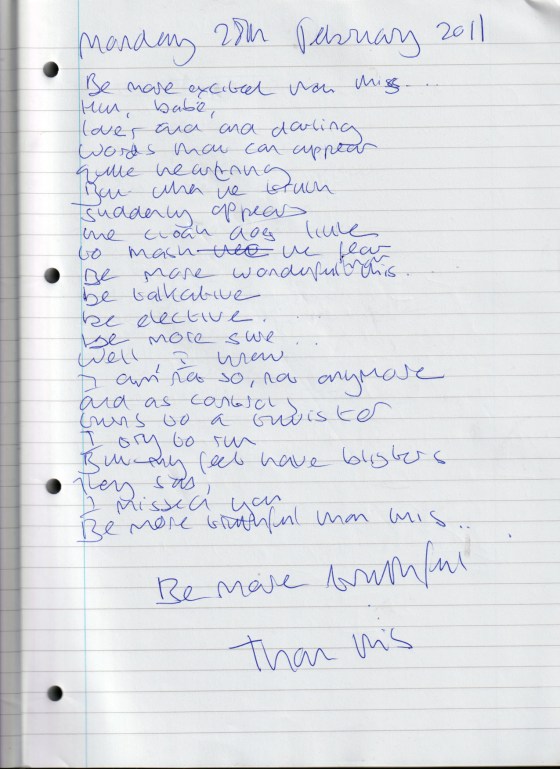 Monday 28th February 2011
Be more excited than this....
Hun, babe,
lover and and darling
words that can appear
quite heartning
But when the truth
suddenly appears
the cloak does little
to mask the fear
Be more wonderful than this.
be talkative
be elective.
be more sure...
Well, I know
I am not so, not anymore
and as
turns to a twister
I try to run
But my feet have blisters
They say,
I missed you
Be more truthful than this..
Be more truthful
Than this